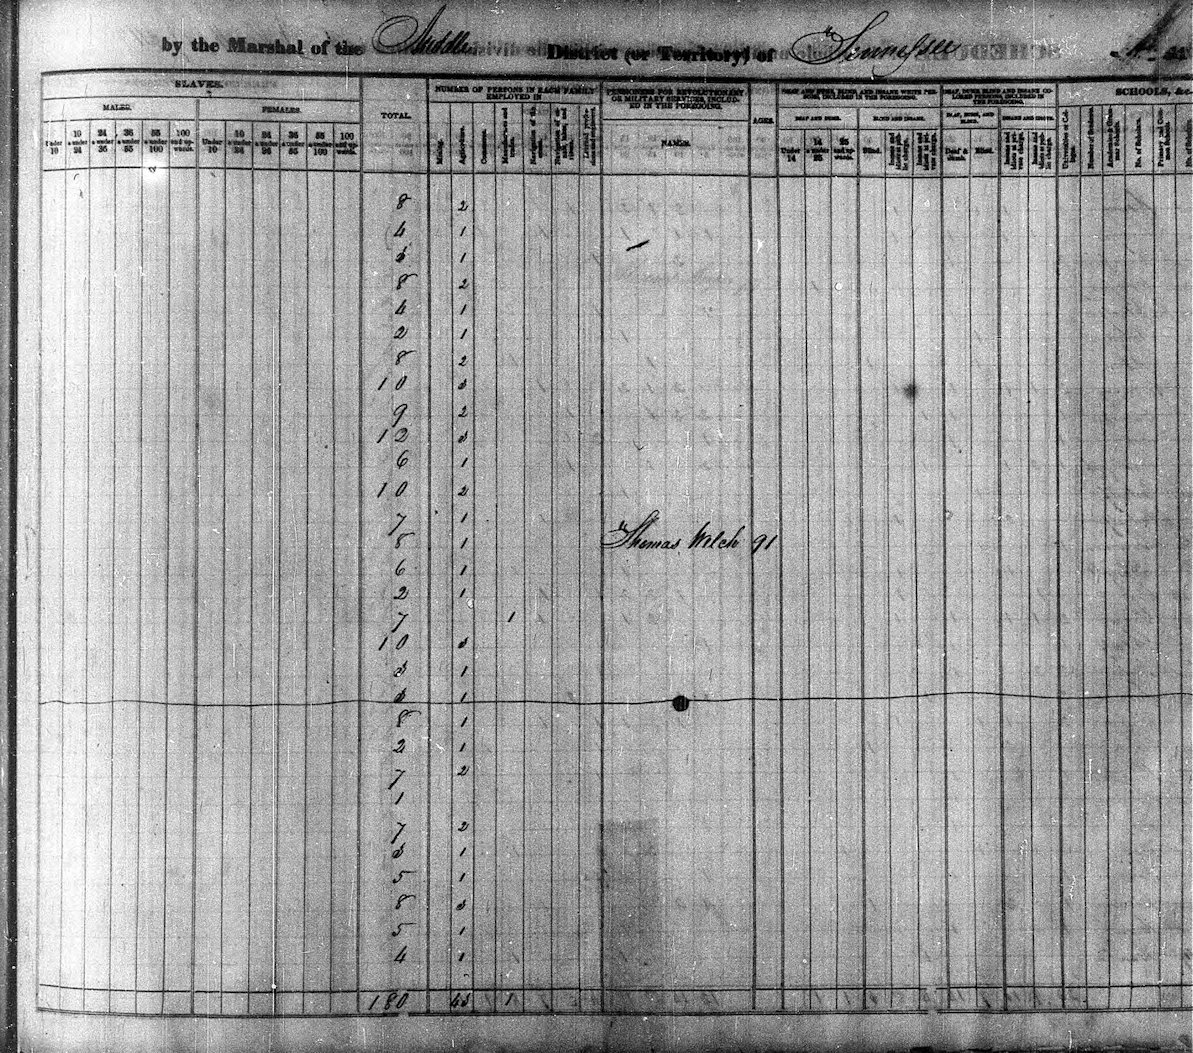 by the Marshal of the Middle District (or Territory) of Tennessee
SLAVES.
MALES. FEMALES.
TOTAL.
NUMBER OF PERSONS IN EACH FAMILY EMPLOYED IN
PENSIONERS FOR REVOLUTIONARY OR MILITARY SERVICES, INCLUDED IN THE FOREGOING.
NAMES.
AGES.
DEAF AND DUMB, BLIND, AND INSANE WHITE PERSONS, INCLUDED IN THE FOREGOING.
DEAF AND DUMB. BLIND AND INSANE.
DEAF, DUMB, BLIND AND INSANE COLORED PERSONS, INCLUDED IN THE FOREGOING.
DEAF, DUMB, AND BLIND. INSANE AND IDIOTS.
SCHOOLS, &c.
Under 10 10 & under 24 24 & under 36 36 & under 55 55 & under 100 100 and upwards.
Under 10 10 & under 24 24 & under 36 36 & under 55 55 & under 100 100 and upwards.
Mining. Agriculture. Commerce.
Under 14 14 & under 25 25 and upwards. Blind. Deaf & dumb. Blind.
No. of Scholars.
8 2
4 1
3 1
8 2
4 1
2 1
8 2
10 3
9 2
12 3
6 1
10 2
7 1
8 1 Thomas Welch 91
6 1
2 1
7 1
10 3
3 1
3 1
8 1
2 1
7 2
1
7 2
3 1
5 1
8 3
5 1
4 1
180 43 1